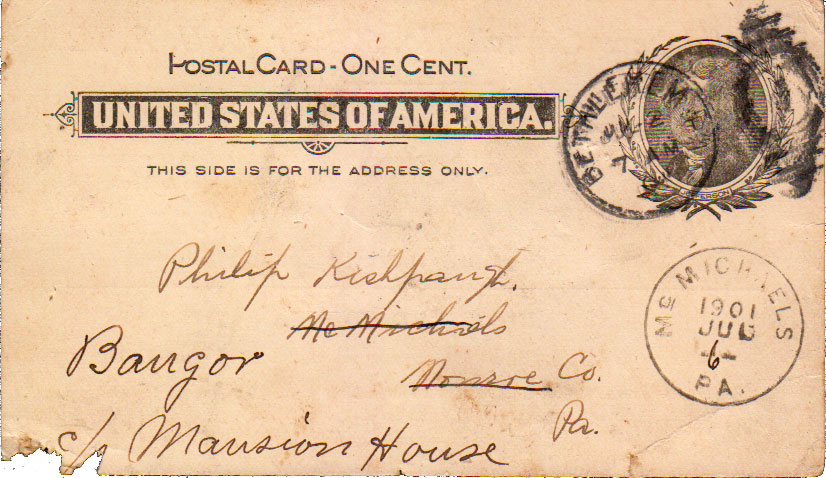 POSTAL CARD - ONE CENT.
UNITED STATES OF AMERICA.
THIS SIDE IS FOR THE ADDRESS ONLY.
BETHLEHEM
JEFFERSON
Philip Kishpaugh.
Mc Michaels
Bangor
Monroe Co.
Pa.
c/o Mansion House
Mc MICHAELS
1901
JUL
6
PA.